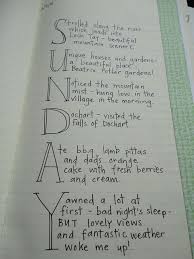 Strolled along the river
which leads into
Loch Tay - beautiful
mountain scenery.
Unique houses and gardens
a beautiful place.
Beatrix Potter gardens!
Noticed the mountain
mist - hung low in the
village in the morning.
Dochart - visited the
Falls of Dochart.
Ate bbq lamb pittas
and dads orange
cake with fresh berries
and cream.
Yawned a lot at
first - bad night's sleep -
BUT lovely views
and fantastic weather
woke me up!